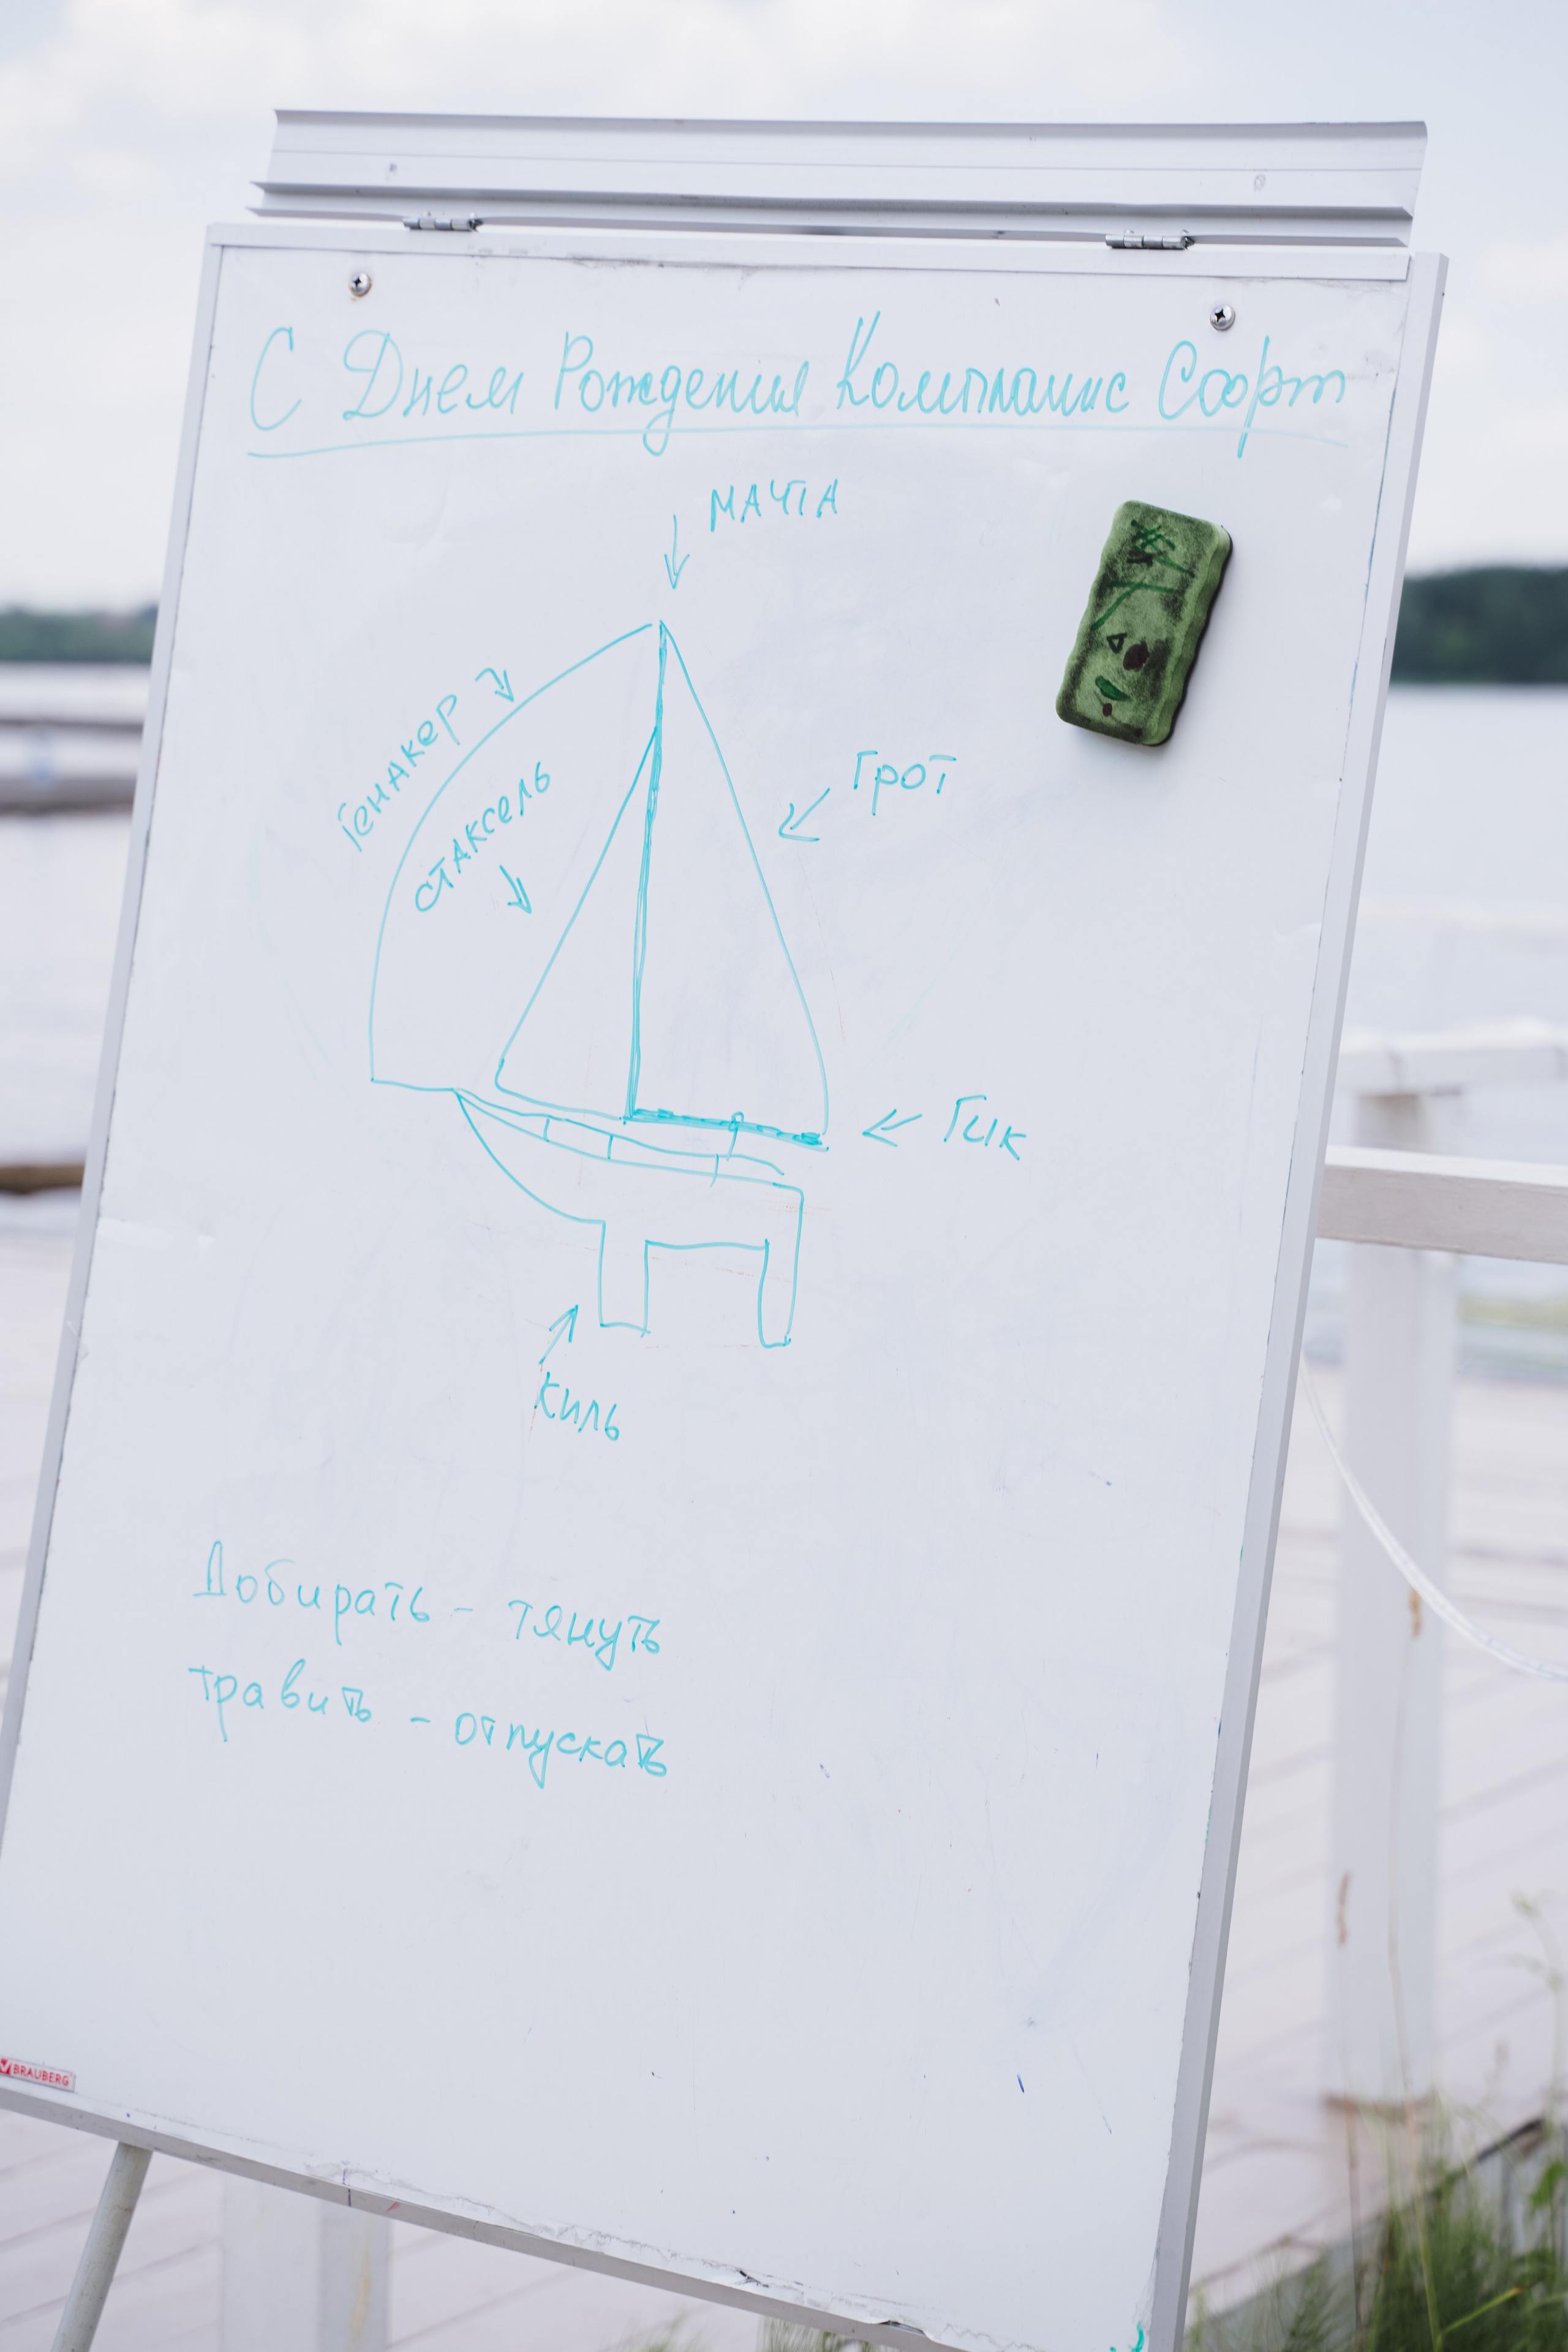 С Днем Рождения Компания Софт
МАЧТА
Генакер
стаксель
Грот
Гик
Киль
Добирать - тянуть
травить - отпускать
BRAUBERG